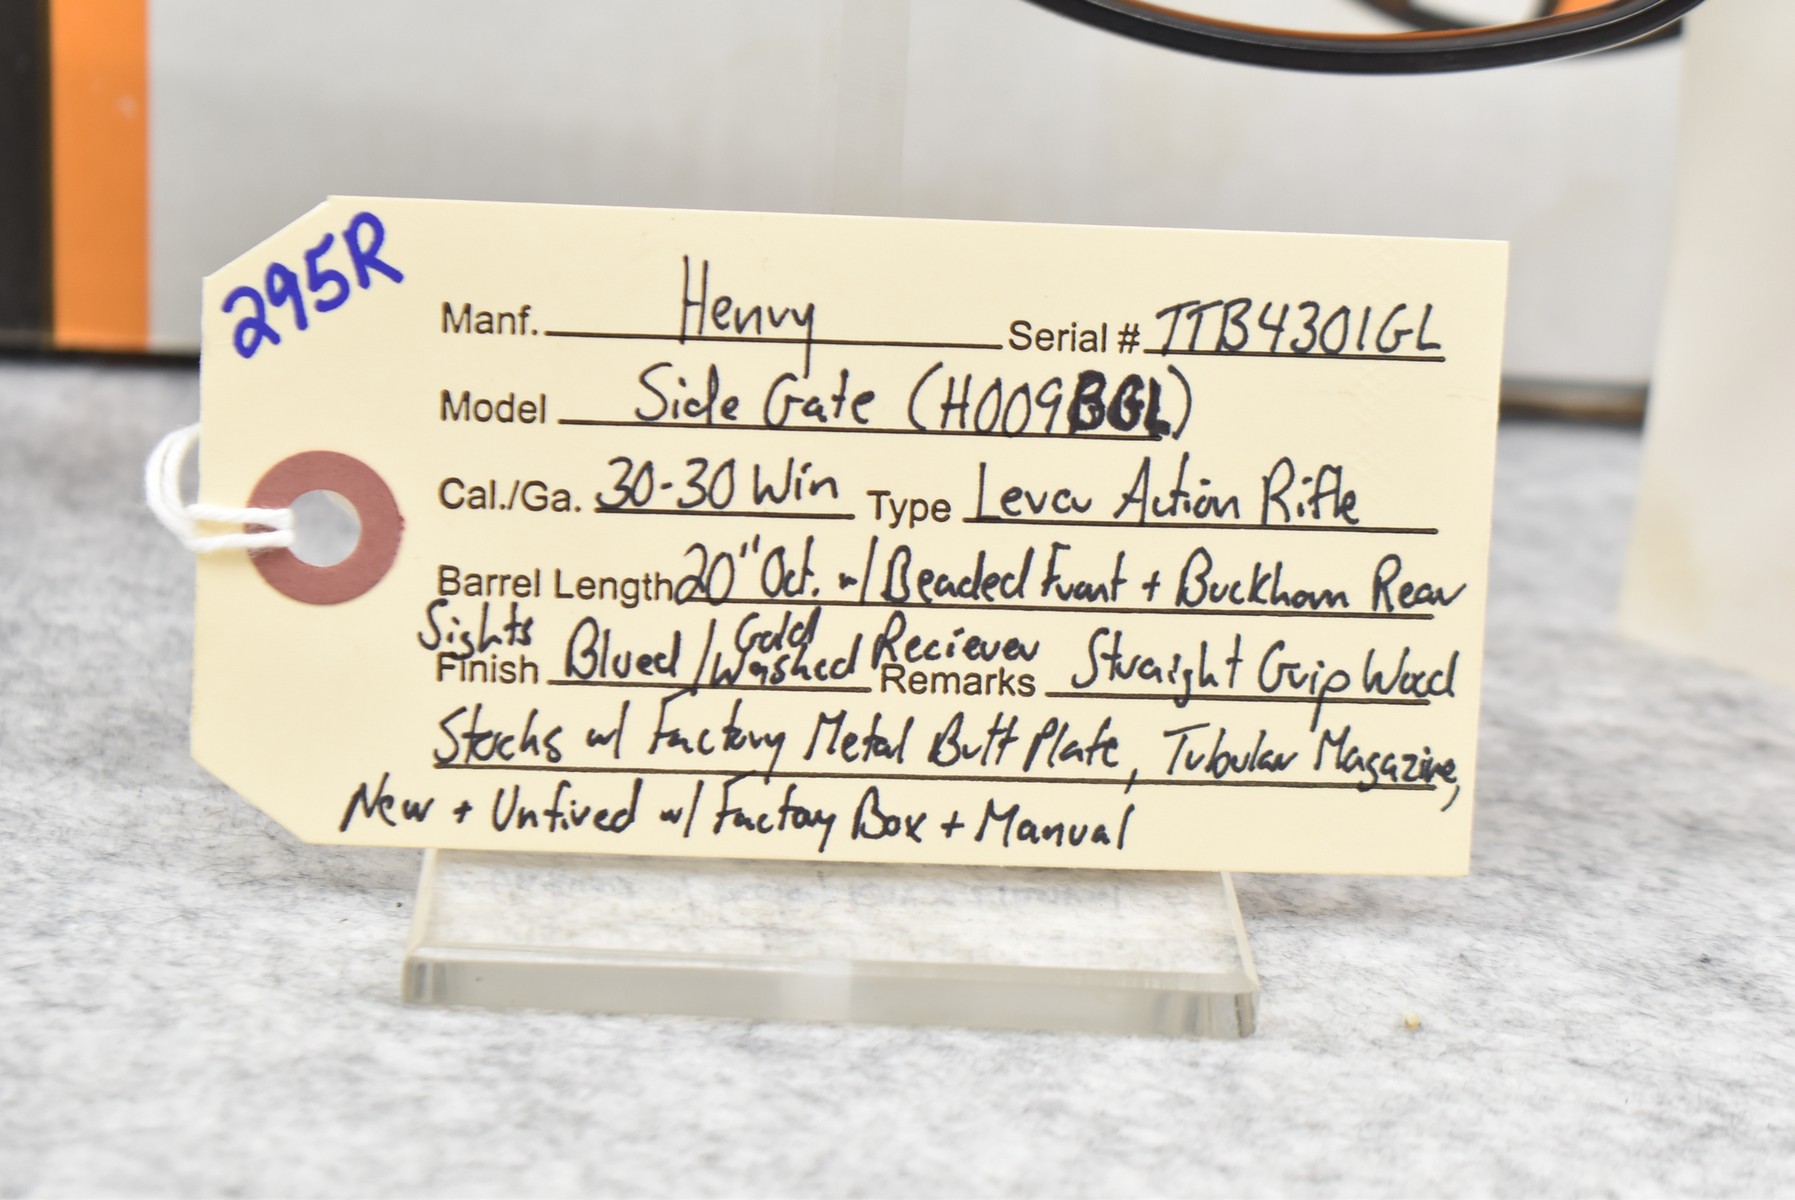 295R
Manf. Henry Serial # TTB4301GL
Model Side Gate (H009BGL)
Cal./Ga. 30-30 Win Type Lever Action Rifle
Barrel Length 20" Oct. w/ Beaded Front + Buckhorn Rear
Sights
Finish Blued/Gold Washed Reciever Remarks Straight Grip Wood
Stocks w/ Factory Metal Butt Plate, Tubular Magazine,
New + Unfired w/ Factory Box + Manual